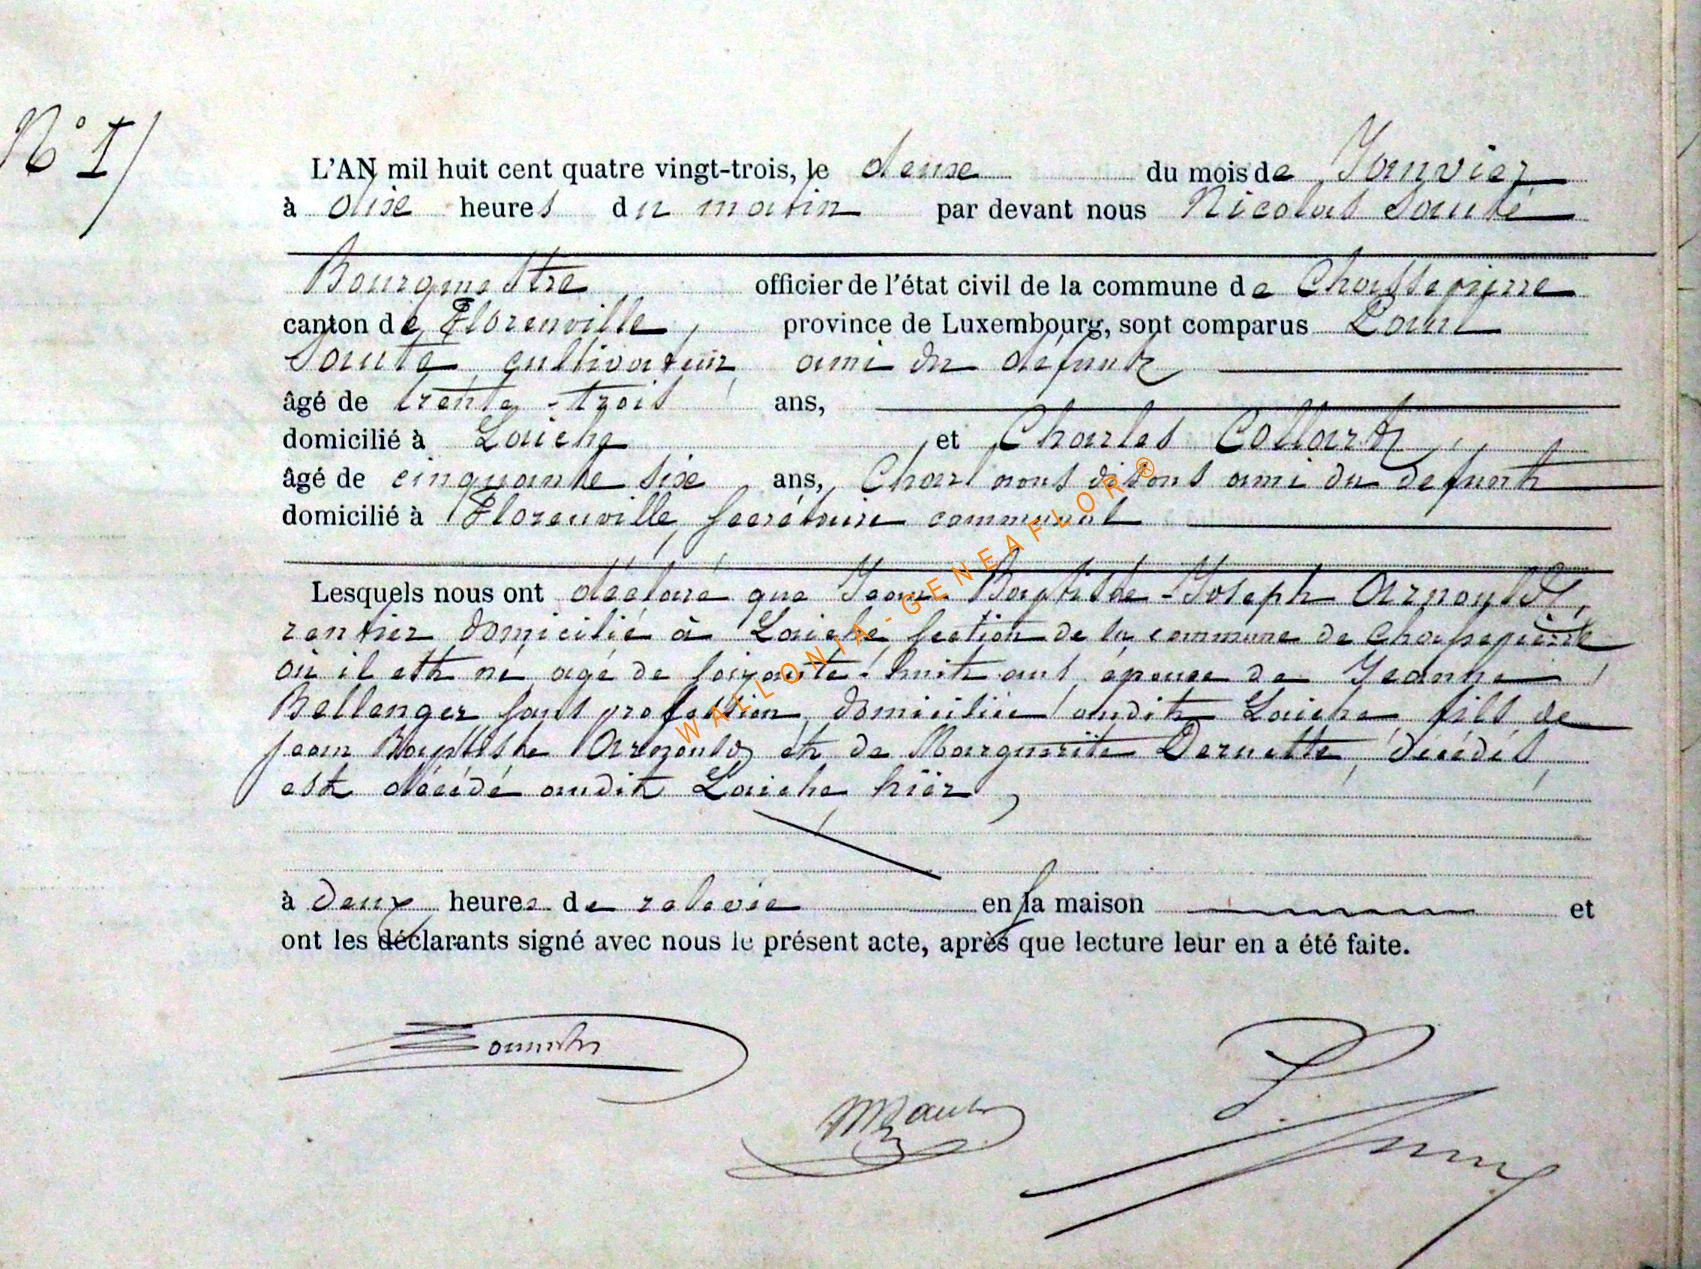 N° 1/
L'AN mil huit cent quatre vingt-trois, le deux du mois de Janvier
à dix heures du matin par devant nous Nicolas
Bourgmestre officier de l'état civil de la commune de Chassepierre
canton de Florenville, province de Luxembourg, sont comparus
cultivateur, ami du défunt
âgé de trente-trois ans,
domicilié à Laiche et Charles Collard,
âgé de cinquante six ans, nous disons ami du defunt
domicilié à Florenville, secrétaire communal
Lesquels nous ont déclaré que Jean-Baptiste-Joseph Arnould,
rentier domicilié à Laiche, section de la commune de Chassepierre
où il est né, agé de soixante-huit ans, epouse de Jeanne
Bellanger sans profession, domiciliée audit Laiche fils de
Jean Baptiste Arnould et de Marguerite, décédés,
est décédé audit Laiche hier,
à deux heures de relevée en sa maison et
ont les déclarants signé avec nous le présent acte, après que lecture leur en a été faite.
WALLONIA-GENEAFLOR®